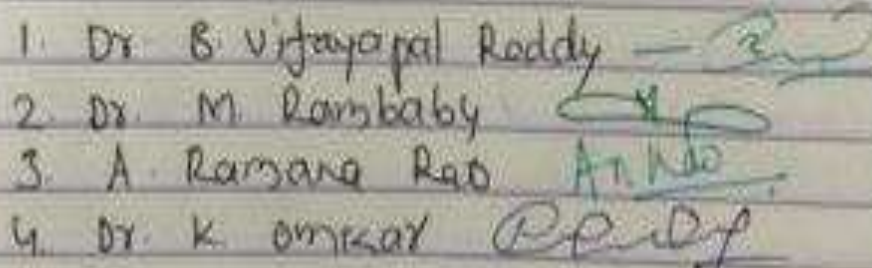 1. Dr. B. Vijayapal Reddy —
2. Dr. M. Rambaby
3. A. Ramana Rao A.R. Rao
4. Dr. K. Omkar